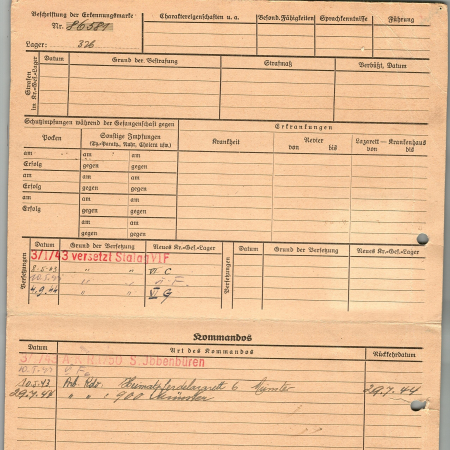 Beschriftung der Erkennungsmarke
Nr. 86581
Lager: 326
Charaktereigenschaften u.a. Besond. Fähigkeiten Sprachkenntnisse Führung
Strafen in Kr.-Gef.-Lager
Datum Grund der Bestrafung Strafmaß Verbüßt, Datum
Schutzimpfungen während der Gefangenschaft gegen
Erkrankungen
Pocken Sonstige Impfungen (Ty.-Paraty., Ruhr, Cholera usw.)
Krankheit Revier von bis Lazarett — Krankenhaus von bis
am am am
Erfolg gegen gegen
am am am
Erfolg gegen gegen
am am am
Erfolg gegen gegen
am am
gegen gegen
Versetzungen
Datum Grund der Versetzung Neues Kr.-Gef.-Lager
Versetzungen
Datum Grund der Versetzung Neues Kr.-Gef.-Lager
3/1/43 versetzt Stalag VI F
8.5.43 " " VI C
10.5.43 " "
4.9.44 " " VI G
Kommandos
Datum Art des Kommandos Rückkehrdatum
3/1/43 1750 S. Jbbenbüren
10.5.43
10.5.43 Arb. Kdo. Heimatpferdelazarett 6 Münster 29.7.44
29.7.44 " " 900 Münster